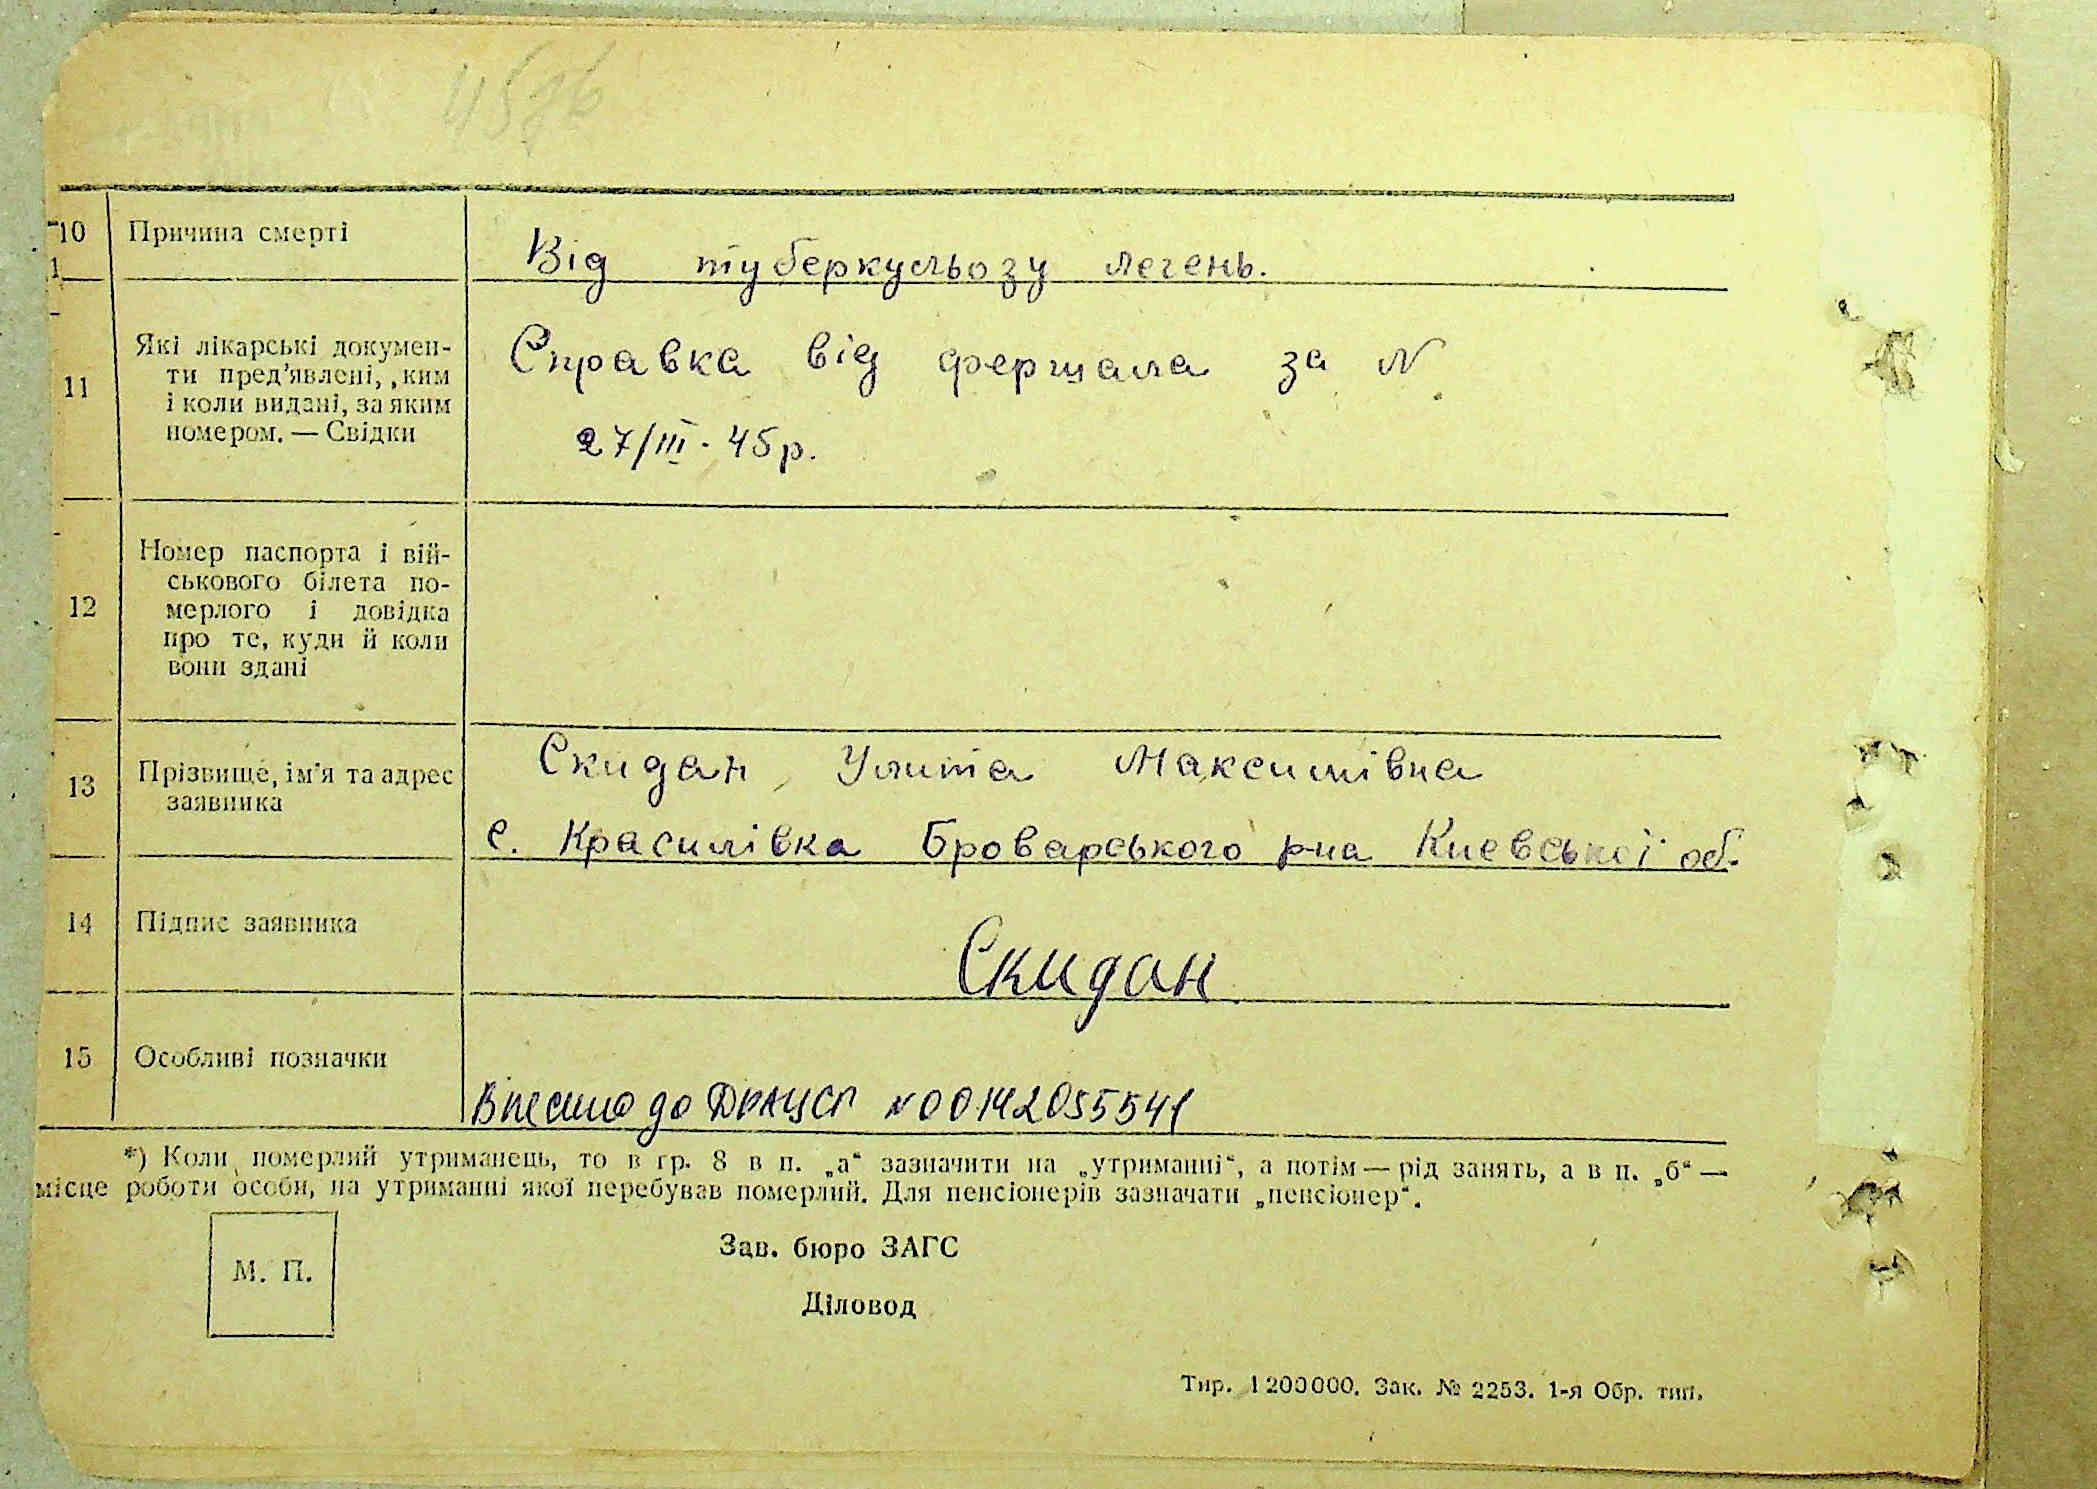 10 Причина смерті
Від туберкульозу легень.
11 Які лікарські докумен-
ти пред'явлені, ким
і коли видані, за яким
номером. — Свідки
Справка від фершала за N
27/III. 45р.
12 Номер паспорта і вій-
ськового білета по-
мерлого і довідка
про те, куди й коли
вони здані
13 Прізвище, ім'я та адрес
заявника
Скидан Улита Максимівна
с. Красилівка Броварського р-на Киевської об.
14 Підпис заявника
Скидан
15 Особливі позначки
Внесено до ДРАЦСГ N 00142055541
*) Коли померлий утриманець, то в гр. 8 в п. „а“ зазначити на „утриманні“, а потім — рід занять, а в п. „б“ —
місце роботи особи, на утриманні якої перебував померлий. Для пенсіонерів зазначати „пенсіонер“.
М. П.
Зав. бюро ЗАГС
Діловод
Тир. 1200000. Зак. № 2253. 1-я Обр. тип.